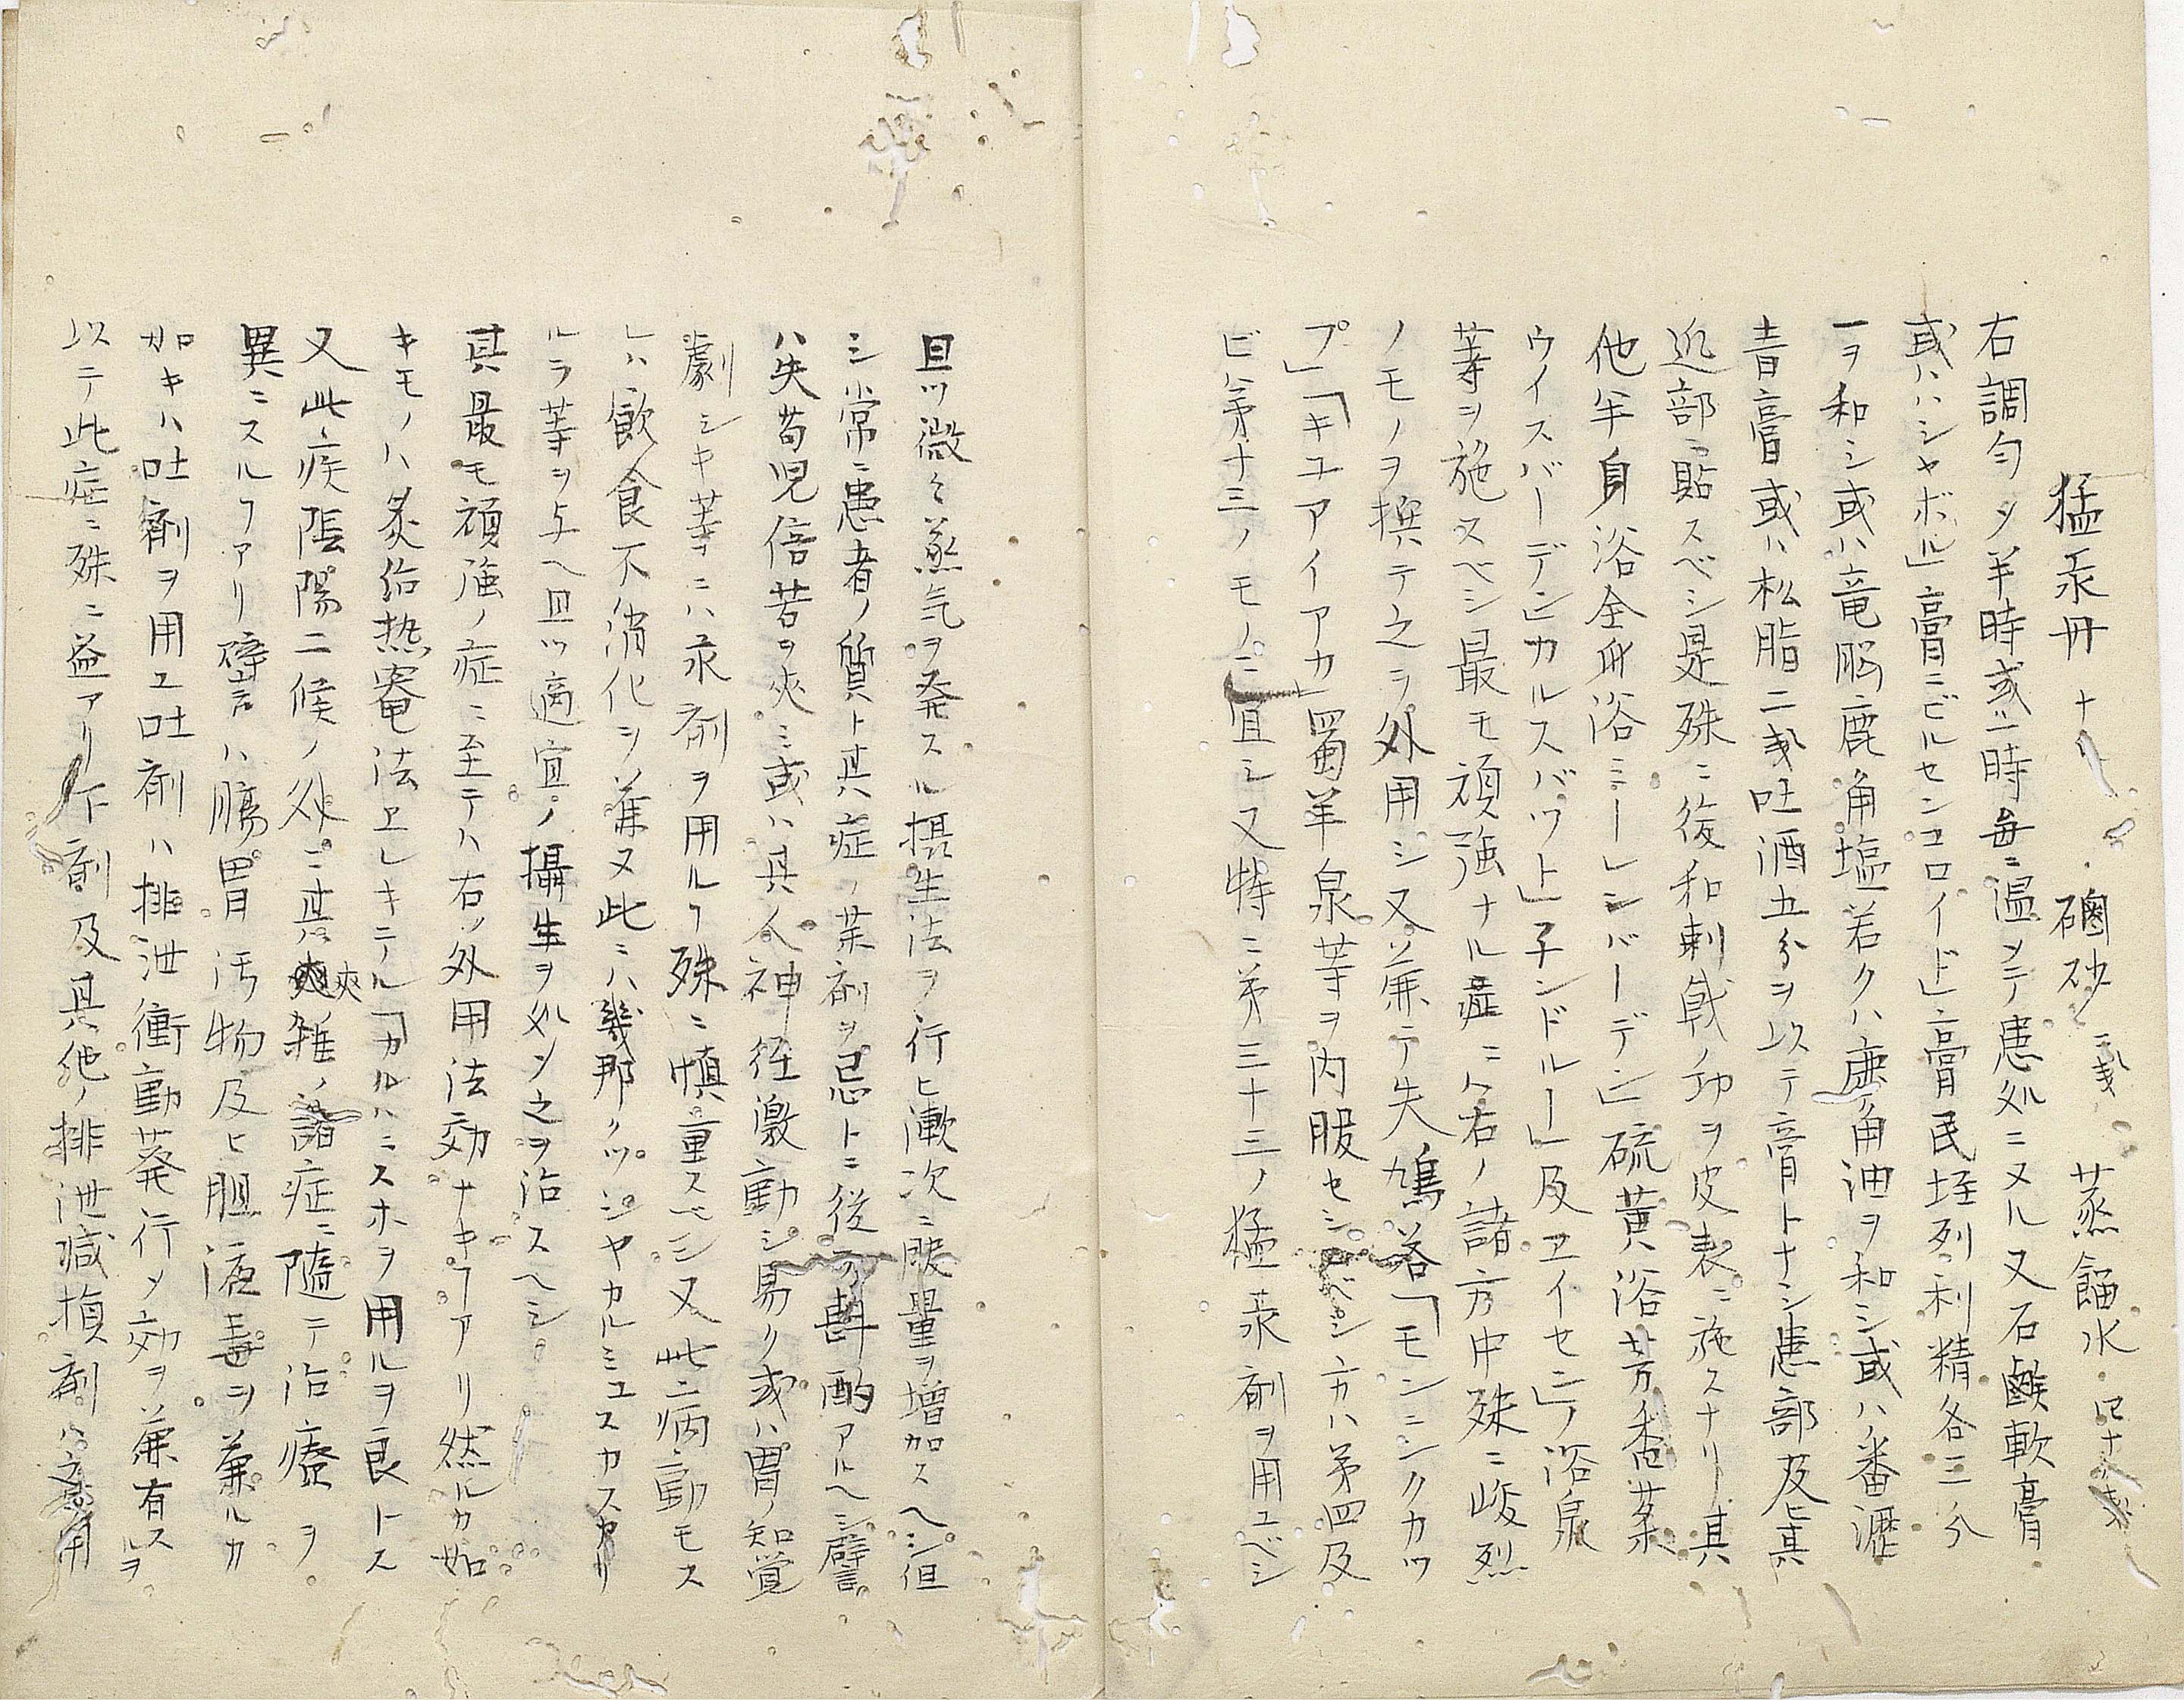 猛汞丹 十 礵砂 二戔 蒸餾水 四十戔
右調匀シ半時或一時毎ニ温メテ患処ニヌル又石鹸軟膏
或ハ「シャボル」膏「ニビルセンコロイド」膏民垤列利精各三分
一ヲ和シ或ハ竜脳鹿角塩若クハ鹿角油ヲ和シ或ハ番瀝
青膏或ハ松脂二戔吐酒五分ヲ以テ膏トナシ患部及ヒ其
近部ニ貼スベシ是殊ニ後和刺戟ノ功ヲ皮表ニ施スナリ其
他半身浴全身浴ミーレシバーデン」硫黄浴芳香薬
ウイスバーデン」カルスバット」子ンドルー」及ヱイセン」ノ浴泉
等ヲ施スベシ最モ頑強ナル症ニハ右ノ諸方中殊ニ峻烈
ノモノヲ撰テ之ヲ外用シ又兼テ失鳩答「モンニンクカツ
プ」「キユアイアカ」蜀羊泉等ヲ内服セシムベシ方ハ第四及
ビ第十三ノモノニ宜シ又特ニ第三十三ノ猛汞剤ヲ用ユベシ
且ツ微々蒸気ヲ発スル摂生法ヲ行ヒ漸次ニ服量ヲ増加スヘシ但
シ常ニ患者ノ質ト其症ノ薬剤ヲ忌トニ従ヲ斟酌アルヘシ譬
ハ失苟児倍苦ヲ夾ミ或ハ其人神経激動シ易ク或ハ胃ノ知覚
劇シキ等ニハ汞剤ヲ用ルヿ殊ニ慎重スベシ又此二病動モス
レハ飲食不消化ヲ兼又此ニハ幾那クワッシヤカルミユスカスカリ
ルラ等ヲ与ヘ且ツ適宜ノ攝生ヲ処シ之ヲ治スヘシ
其最モ頑強ノ症ニ至テハ右ノ外用法効ナキヿアリ然ルカ如
キモノハ炙焫熱罨法ヱレキテル「カルハニスホヲ用ルヲ良トス
又此疾陰陽二候ノ外ニ其夾雑ノ諸症ニ隨テ治療ヲ
異ニスルヿアリ譬言ハ腸胃汚物及ヒ胆液毒ヲ兼ルカ
如キハ吐剤ヲ用ユ吐剤ハ排泄衝動蒸発行ノ効ヲ兼有スルヲ
以テ此症ニ殊ニ益アリ下剤及其他ノ排泄減損剤ハ之ヲ用